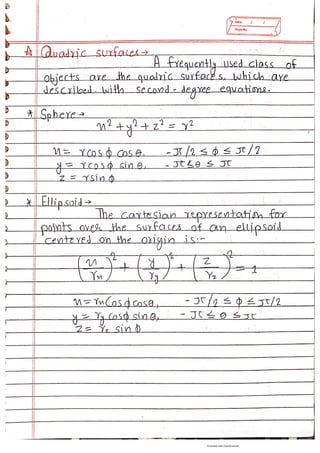 Date / /
* Quadric surfaces →
A frequently used class of
objects are the quadric surfaces, which are
described with second-degree equations.
* Sphere →
x² + y² + z² = r²
x = r cos φ cos θ. -π/2 ≤ φ ≤ π/2
y = r cos φ sin θ, -π ≤ θ ≤ π
z = r sin φ
* Ellipsoid →
The cartesian representation for
points over the surfaces of an ellipsoid
centered on the origin is:-
(x/rx)² + (y/ry)² + (z/rz)² = 1
x = rx cos φ cos θ, -π/2 ≤ φ ≤ π/2
y = ry cos φ sin θ, -π ≤ θ ≤ π
z = rz sin φ